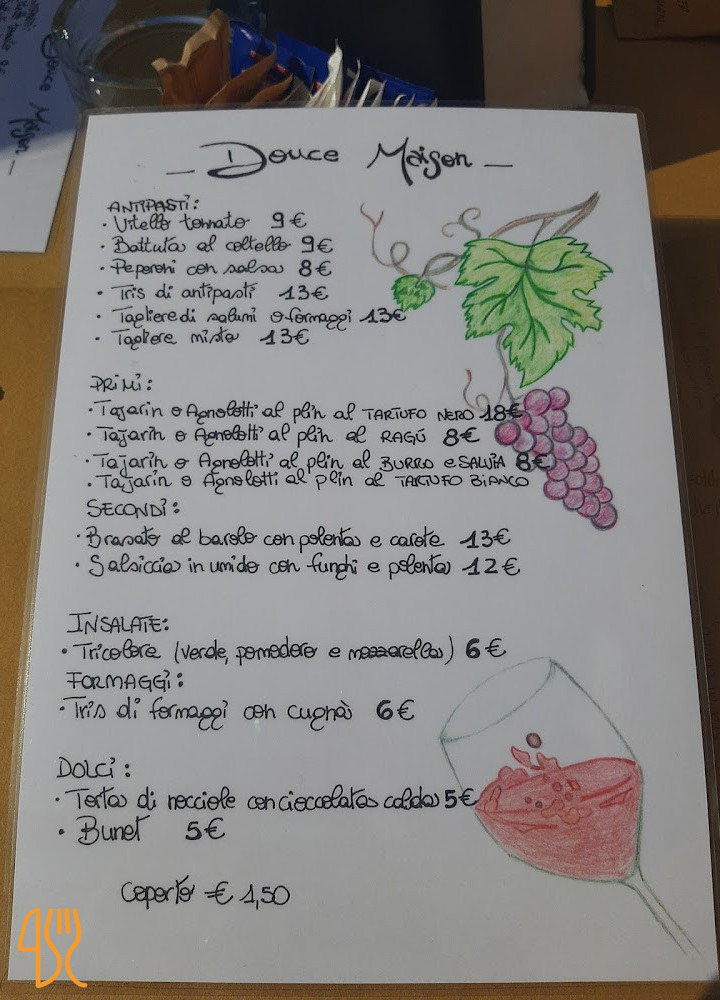 Douce Maison
ANTIPASTI:
• Vitello tonnato 9€
• Battuta al coltello 9€
• Peperoni con salsa 8€
• Tris di antipasti 13€
• Tagliere di salumi o formaggi 13€
• Tagliere misto 13€
PRIMI:
• Tajarin o Agnolotti al plin al TARTUFO NERO 18€
• Tajarin o Agnolotti al plin al RAGÚ 8€
• Tajarin o Agnolotti al plin al BURRO e SALVIA 8€
• Tajarin o Agnolotti al plin al TARTUFO BIANCO
SECONDI:
• Brasato al barolo con polenta e carote 13€
• Salsiccia in umido con funghi e polenta 12€
INSALATE:
• Tricolore (verde, pomodoro e mozzarella) 6€
FORMAGGI:
• Tris di formaggi con cugnà 6€
DOLCI:
• Torta di nocciole con cioccolata calda 5€
• Bunet 5€
Coperto € 1,50